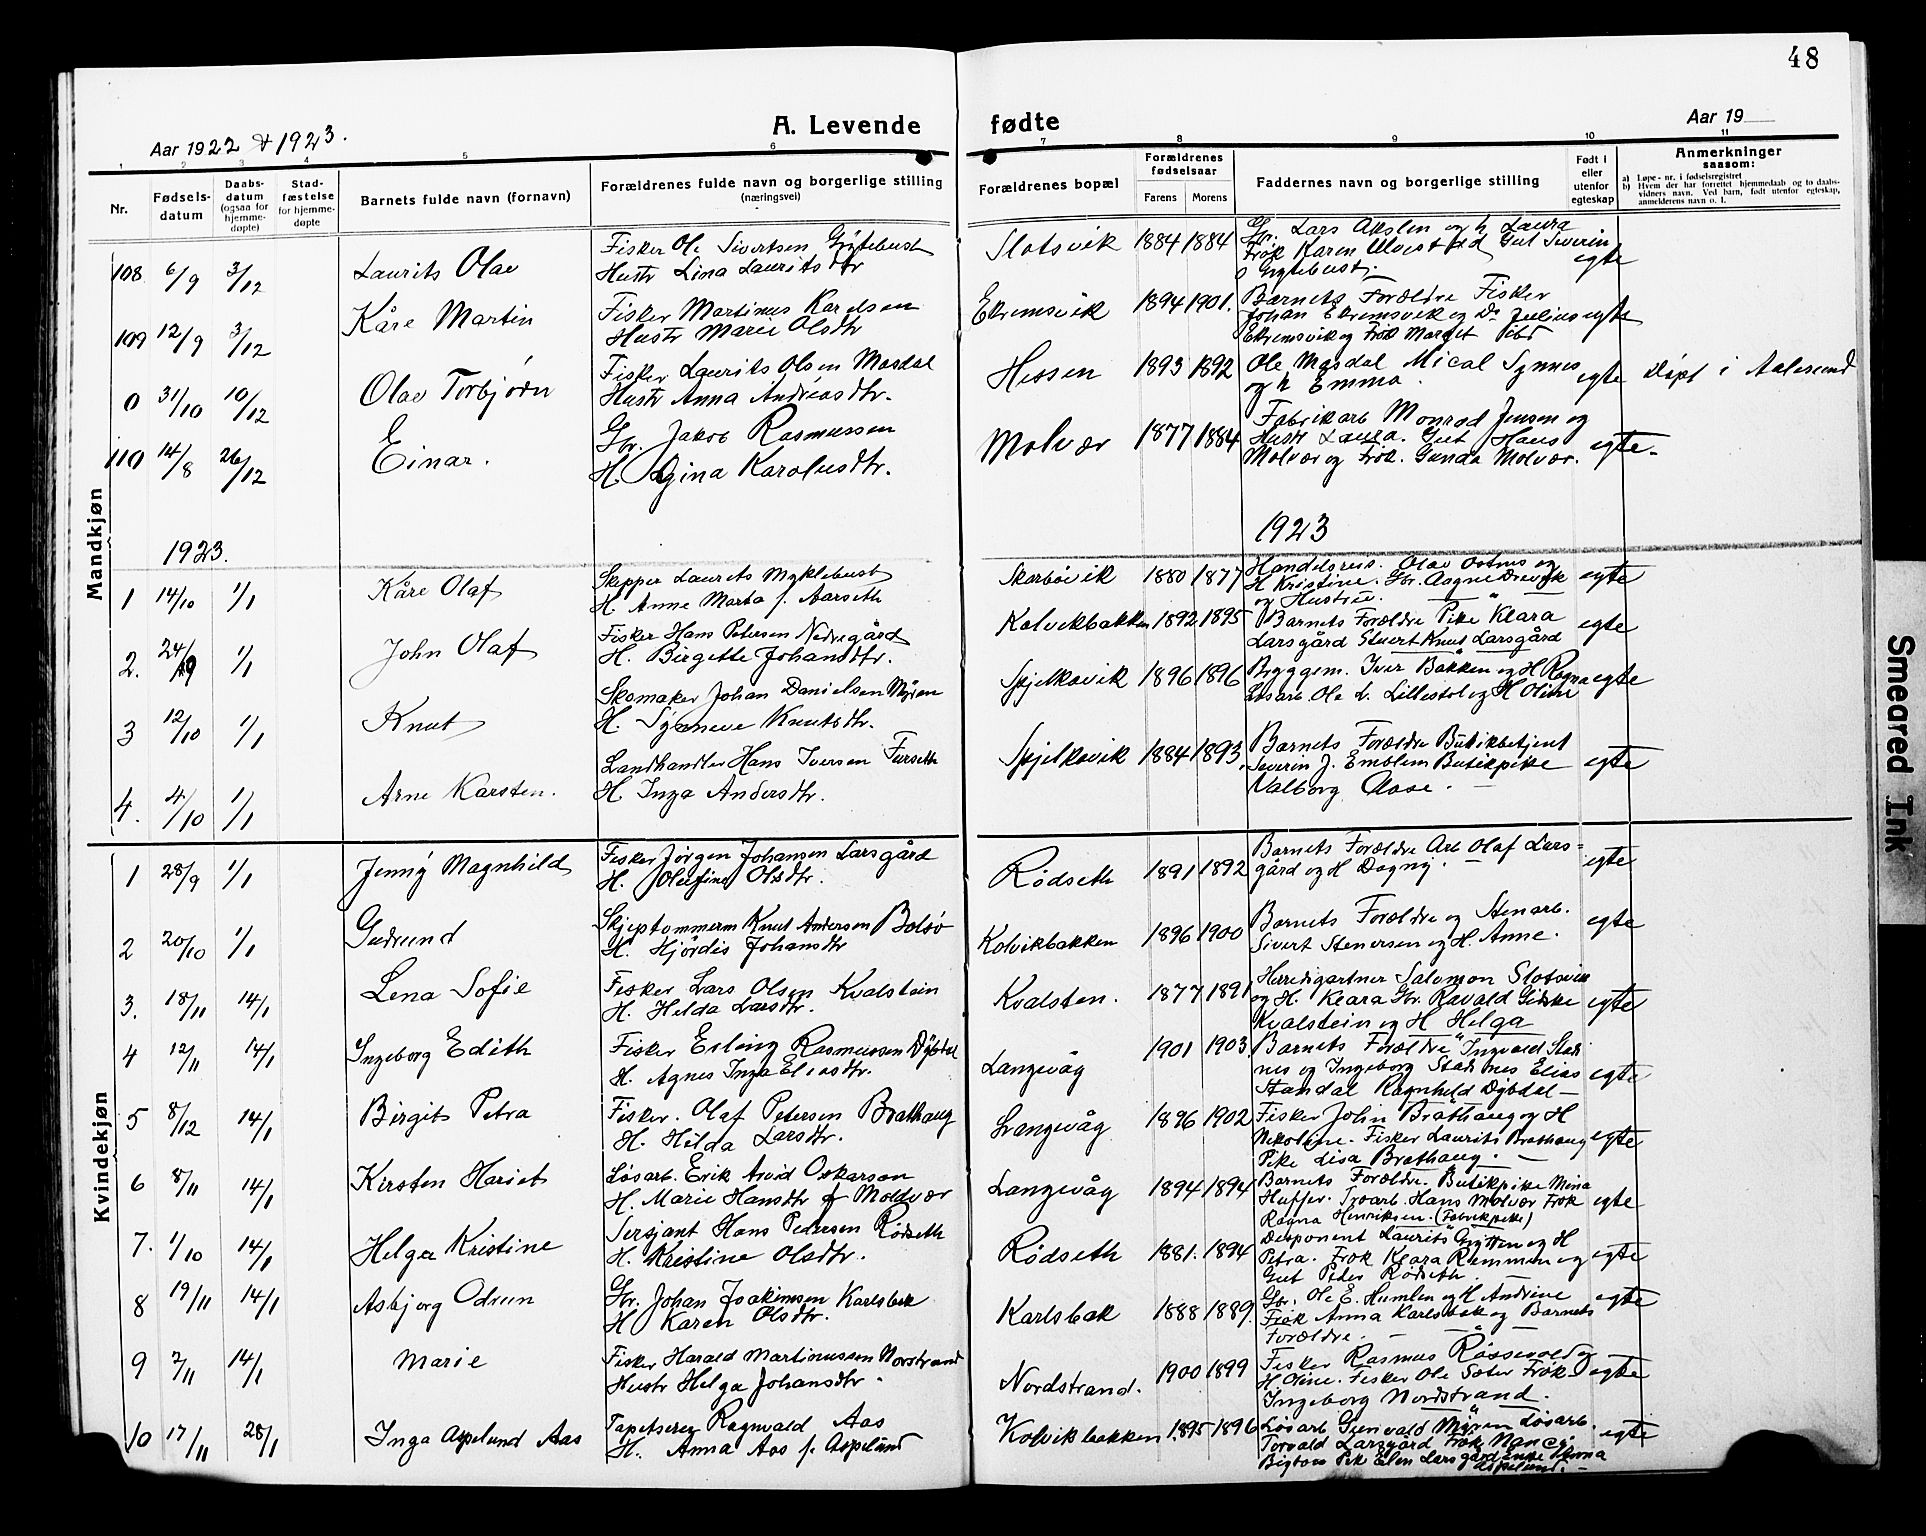 48
Aar 1922 & 1923.
A. Levende fødte
Aar 19
1 2 3 4 5 6 7 8 9 10 11
Nr.
Fødsels-
datum
Daabs-
datum
(ogsaa for
hjemme-
døpte)
Stad-
fæstelse
for hjemme-
døpte
Barnets fulde navn (fornavn)
Forældrenes fulde navn og borgerlige stilling
(næringsvei)
Forældrenes bopæl
Forældrenes
fødselsaar
Farens Morens
Faddernes navn og borgerlige stilling
Født i
eller
utenfor
egteskap
Anmerkninger
saasom:
a) Løpe-nr. i fødselsregistret
b) Hvem der har forrettet hjemmedaab og to daabs-
vidners navn. Ved barn, født utenfor egteskap,
anmelderens navn o. l.
Mandkjøn
108 6/9 3/12 Laurits Olav
Fisker Ole Sivertsen Grytebust
Hustr Lina Lauritsdtr
Slotsvik 1884 1884
Gbr. Lars Akslen og h. Laura
Frøk Karen Gut Severin
Grytebust.
egte
109 12/9 3/12 Kåre Martin
Fisker Martinus Karlsen
Hustr Marie Olsdtr
Ekremsvik 1894 1901.
Barnets Forældre Fisker
Johan Ekremsvik og Do Julius
Ekremsvik og Frøk Margit
egte
0 31/10 10/12 Olav Torbjørn
Fisker Laurits Olsen Masdal
Hustr Anna Andreasdtr.
Hessen 1893 1892
Ole Masdal Mical Synnes
og h Emma.
egte Døpt i Aalesund
110 14/8 26/12 Einar.
Gbr. Jakob Rasmussen
H. Gina Karolusdtr.
Molvær 1877 1884
Fabrikarb Monrad Jensen og
Hustr Laura. Gut Hans
Molvær og Frøk. Gunda Molvær.
egte.
1923.
1923
1 14/10 1/1 Kåre Olaf
Skipper Laurits Myklebust
H. Anne Marta f. Aarseth
Skarbøvik 1880 1877
Handelsreis. Olav Ostnes og
H Kristine. Gbr. Aagne Drevik
og Hustru.
egte
2. 24/9 1/1 John Olaf
Fisker Hans Petersen Nedregård
H. Birgette Johansdtr.
Kolvikbakken 1892 1895
Barnets Forældre Pike Klara
Larsgård Stuert Knut Larsgård
egte
3 12/10 1/1 Knut
Skomaker Johan Danielsen Myren
H. Synneve Knutsdtr.
Spjelkavik 1896 1896
Byggem. Iver Bakken og H Ragna
Løsarb Ole L. Lillestøl og H Oline
egte
4. 4/10 1/1 Arne Karsten.
Landhandler Hans Iversen Furseth
H Inga Andersdtr.
Spjelkavik 1884 1893
Barnets Forældre Butikbetjent
Severin J. Emblem Butikpike
Valborg Aase. —
egte
Kvindekjøn
1 28/9 1/1 Jenny Magnhild
Fisker Jørgen Johansen Larsgård
H. Olufine Olsdtr.
Rødseth 1891 1892
Barnets Forældre Arb Olaf Lars=
gård og H Dagny.
egte
2 20/10 1/1 Gudrund
Skjepstømmerm Knut Andersen Bolsø
H. Hjördis Johansdtr
Kolvikbakken 1896 1900
Barnets Forældre og Stenarb.
Sivert Stenersen og H. Anne.
egte
3. 18/11 14/1 Lena Sofie
Fisker Lars Olsen Kvalstein
H. Helda Larsdtr.
Kvalsten. 1877 1891
Herredsgartner Salomon Slotsvik
og H. Klara Gbr. Ravald Giske
Kvalstein og H Helga
egte
4 12/11 14/1 Ingeborg Edith
Fisker Erling Rasmussen Dybdal
H. Agnes Inga Eliasdtr.
Langevåg 1901 1903
Barnets Forældre Ingvald Stad
nes og Ingeborg Stadsnes Elias
Standal Ragnhild Dybdal —
egte
5 8/12 14/1 Birgit Petra
Fisker. Olaf Petersen Brathaug
H. Hilda Larsdtr.
Langevåg 1896 1902
Fisker John Brathaug og H
Nikoline. Fisker Laurits Brathaug
Pike Lisa Brathaug. —
egte
6 8/11 14/1 Kirsten Hariet
Løsarb. Erik Arvid Oskarson
H. Marie Hansdtr f Moldvær
Langevåg 1894 1894
Barnets Forældre. Butikpike Mina
Huffer. Hans Molvær Frøk
Ragna Henriksen (Fabrikpike)
egte
7. 1/10 14/1 Helga Kristine
Sersjant Hans Pedersen Rødseth
H. Kristine Olsdtr.
Rødseth 1881. 1894
Disponent Laurits Grytten og H
Petra. Frøk Klara Remmen og
Gut Peder Rødseth
egte
8 19/11 14/1 Asbjorg Odrun
Gbr. Johan Joakimsen Karlsbak
H Karen Olsdtr.
Karlsbak 1888 1889.
Gbr. Ole E. Humlen og H Andrine
Frøk Anna Karlsbak og Barnets
Forældre. —
egte
9 2/11 14/1 Marie
Fisker Harald Martinussen Norstrand
Hustr Helga Johansdtr.
Nordstrand. 1900 1899
Fisker Rasmus Røssevold og
H Oline. Fisker Ole Sæter Frøk
Ingeborg Nordstrand.
egte
10 17/11 28/1 Inga Aspelund Aas
Tapetserer Ragnvald Aas
H. Anna Aas f. Aspelund
Kolvikbakken 1895 1896
Løsarb Gunvald Myren Løsarb.
Torvald Larsgård Frøk Nancy
Pik Elen Larsgård Enke Anna
Aspelund. —
egte
Smeared Ink